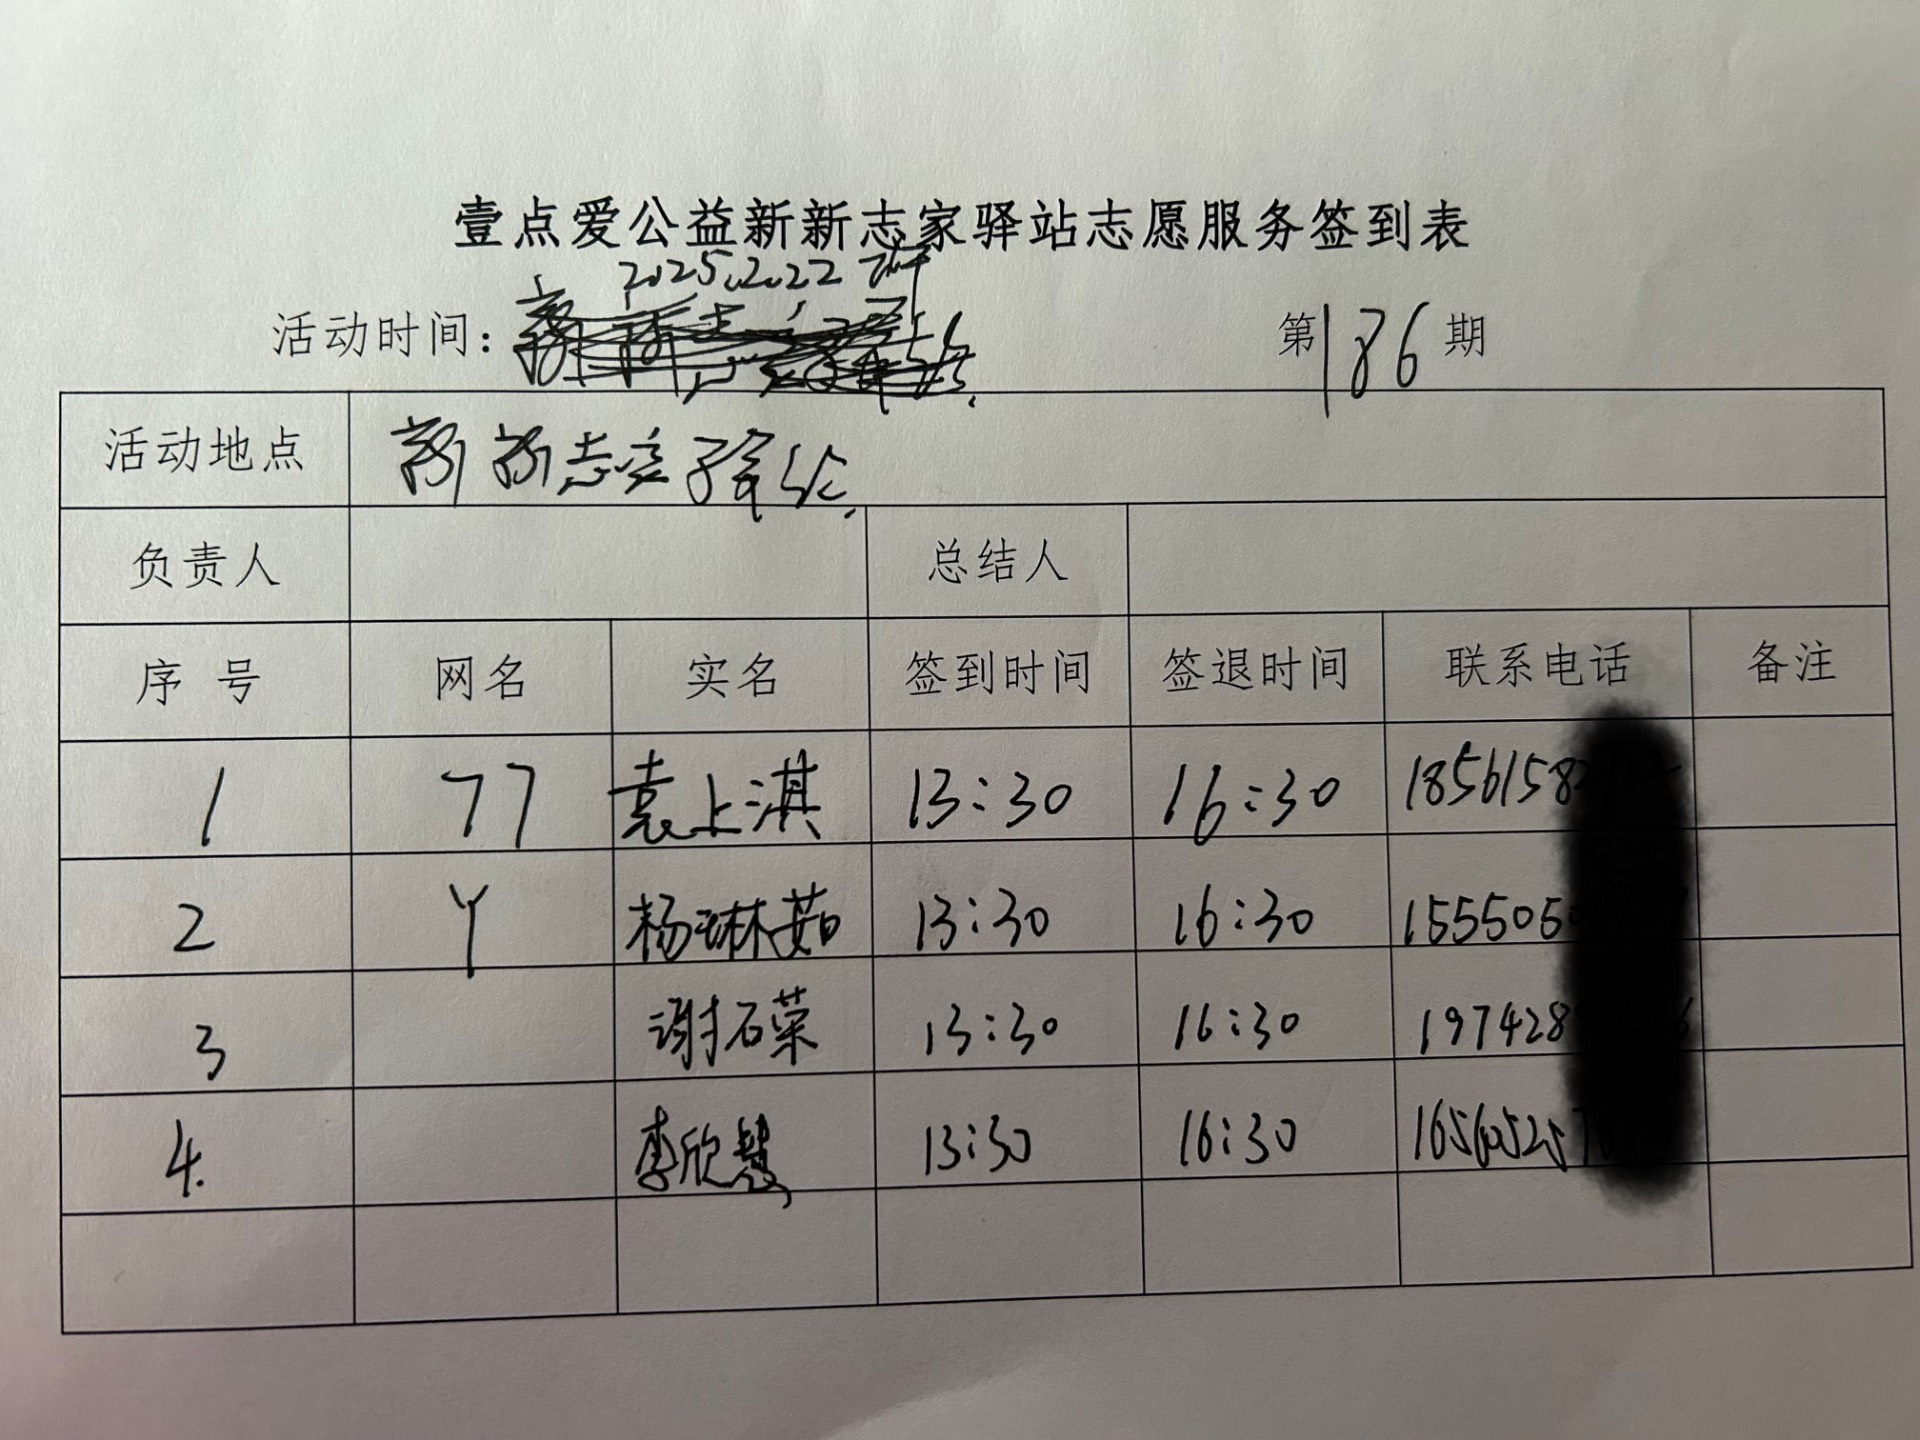 壹点爱公益新新志家驿站志愿服务签到表
2025.2.22
活动时间：
第186期
活动地点 新新志家驿站
负责人 总结人
序号 网名 实名 签到时间 签退时间 联系电话 备注
1 77 袁上淇 13:30 16:30 1856158
2 Y 杨琳茹 13:30 16:30 155505
3 谢石荣 13:30 16:30 197428
4. 李欣慧 13:30 16:30